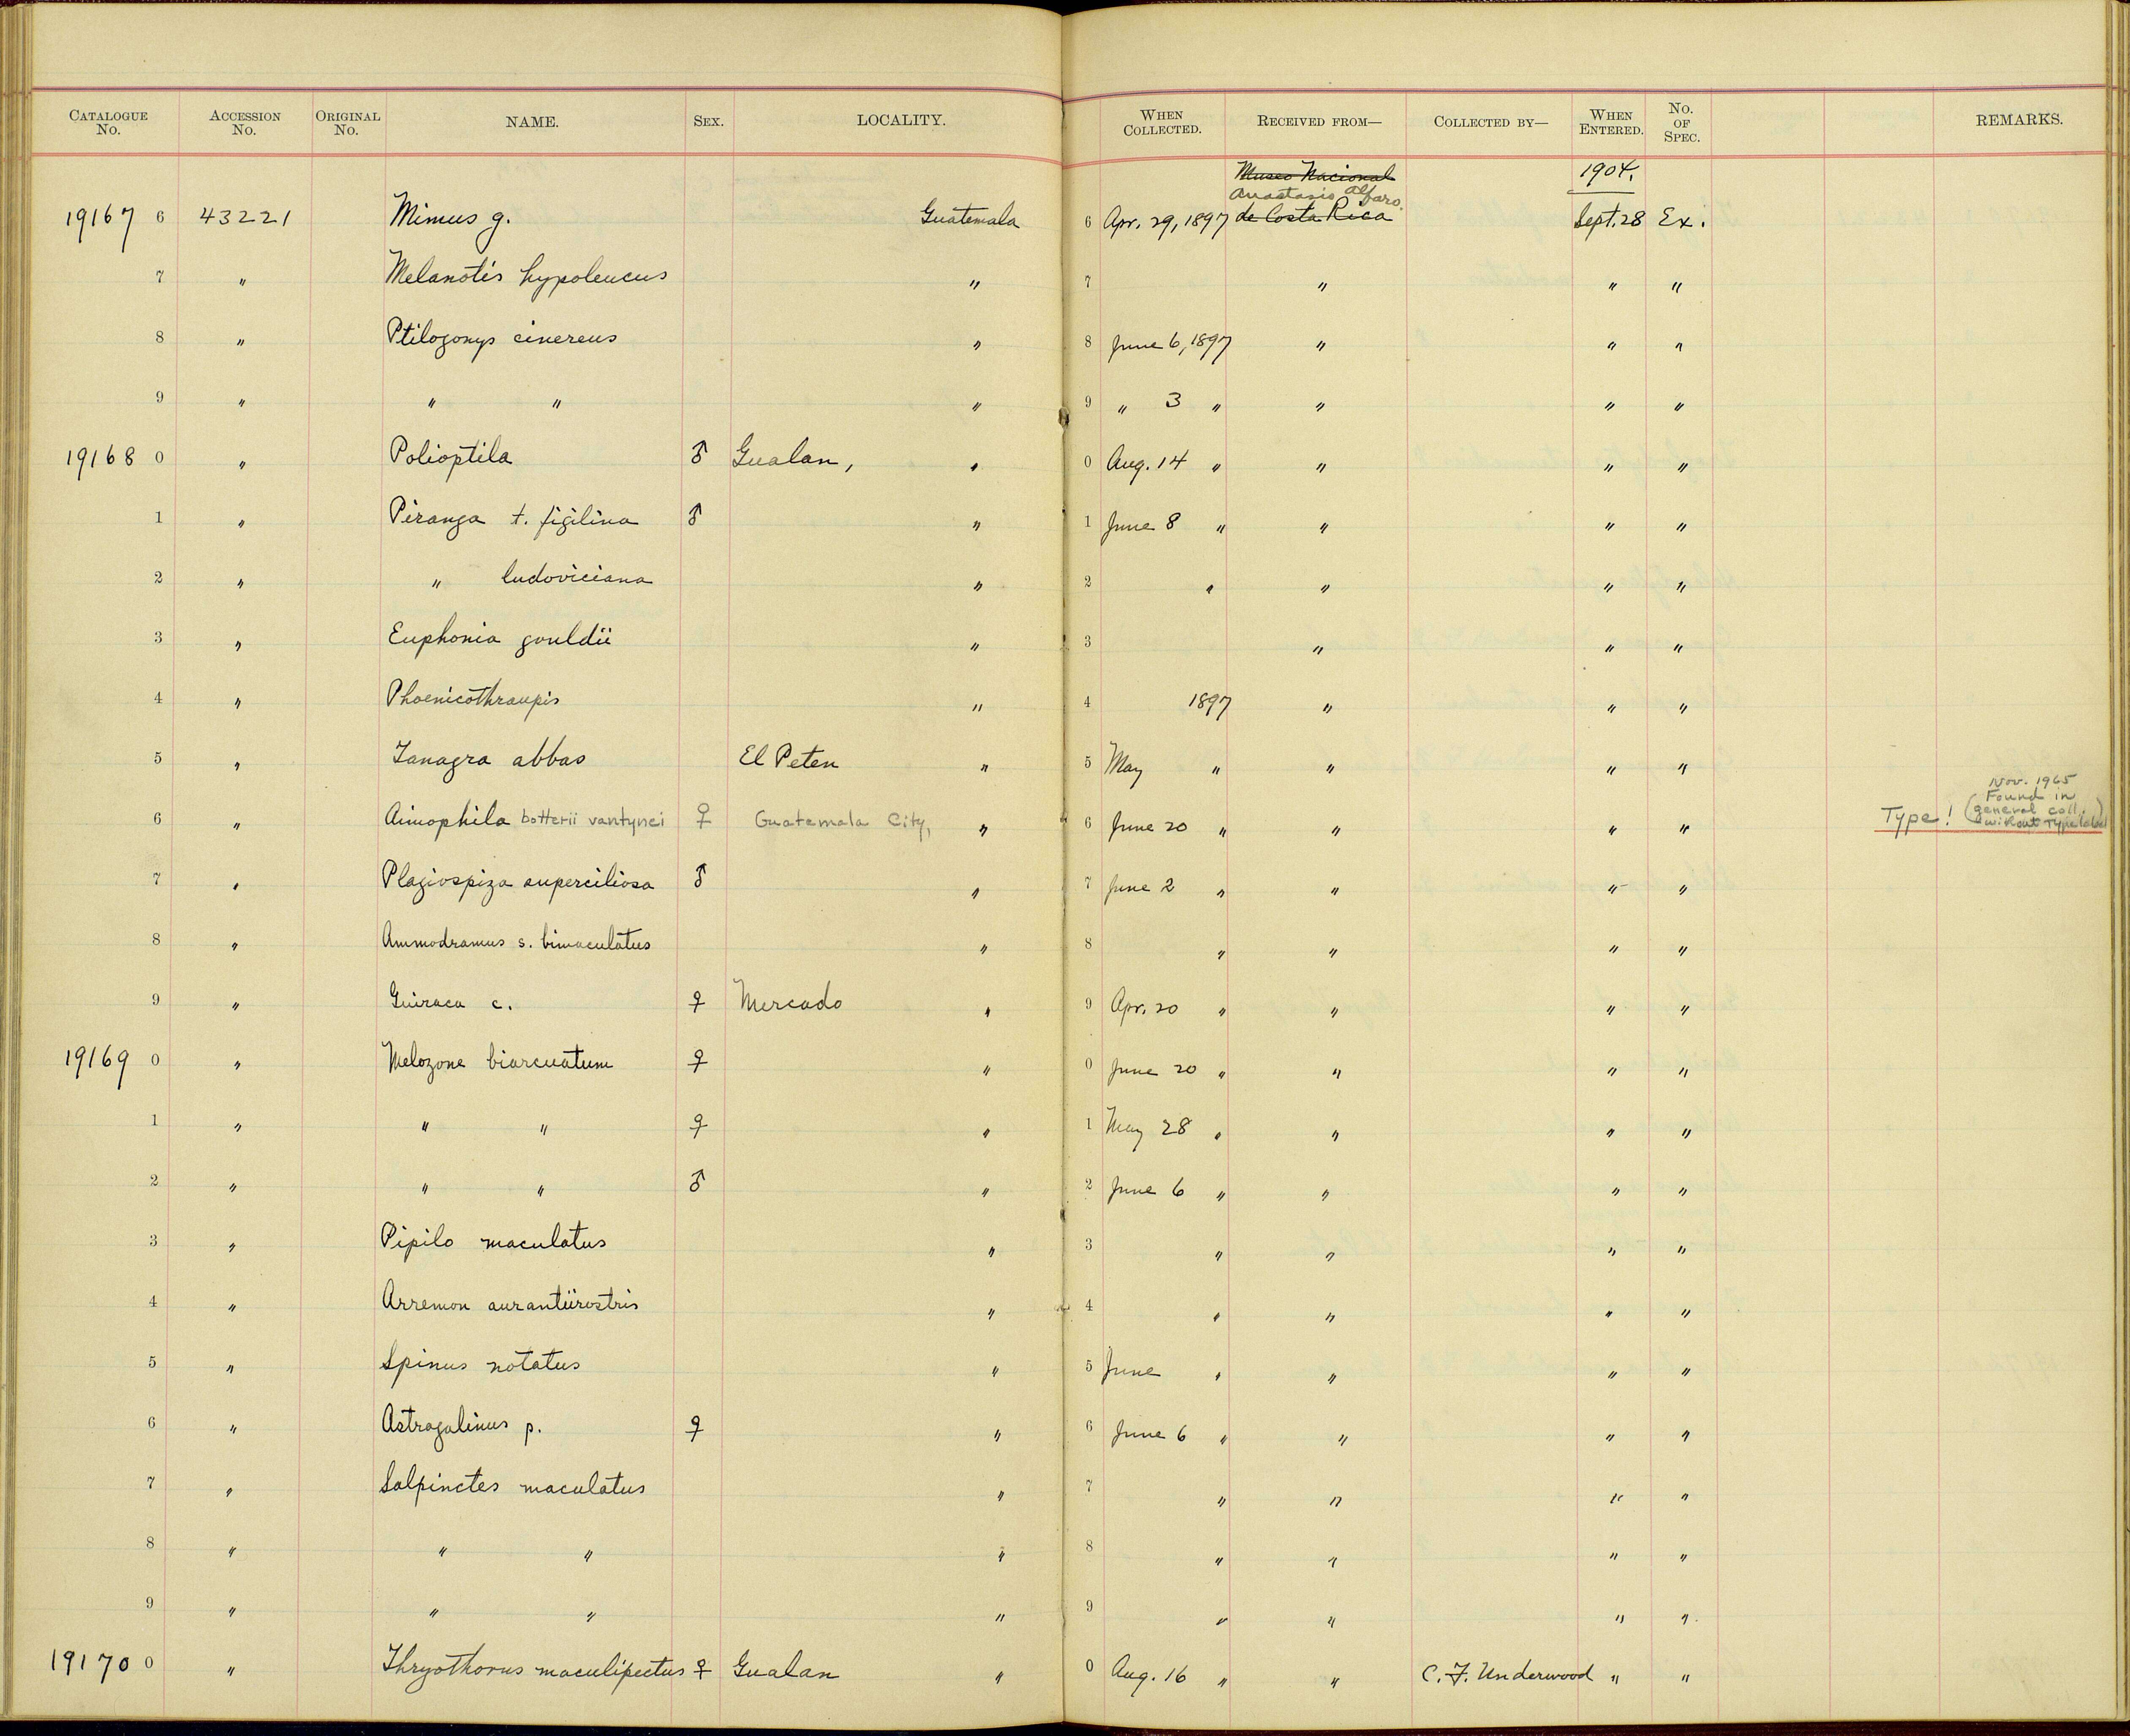 CATALOGUE No. ACCESSION No. ORIGINAL No. NAME. SEX. LOCALITY. WHEN COLLECTED. RECEIVED FROM— COLLECTED BY— WHEN ENTERED. No. OF SPEC. REMARKS.
Museo Nacional 1904.
Anastasio Alfaro.
19167 6 43221 Mimus g. Guatemala 6 Apr. 29, 1897 de Costa Rica Sept. 28 Ex.
7 " Melanotis hypoleucus " 7 " " "
8 " Ptilogonys cinereus " 8 June 6, 1897 " " "
9 " " " " 9 " 3 " " " "
19168 0 " Polioptila ♂ Gualan, " 0 Aug. 14 " " " "
1 " Piranga t. figilina ♂ " 1 June 8 " " " "
2 " " ludoviciana " 2 " " " "
3 " Euphonia gouldii " 3 " " "
4 " Phoenicothraupis " 4 1897 " " "
5 " Tanagra abbas El Peten " 5 May " " " "
Nov. 1965
Found in
6 " Aimophila botterii vantynei ♀ Guatemala City, " 6 June 20 " " " " Type! (general coll. without Type label)
7 " Plagiospiza superciliosa ♂ " 7 June 2 " " " "
8 " Ammodramus s. bimaculatus " 8 " " " "
9 " Guiraca c. ♀ Mercado " 9 Apr. 20 " " " "
19169 0 " Melozone biarcuatum ♀ " 0 June 20 " " " "
1 " " " ♀ " 1 May 28 " " " "
2 " " " ♂ " 2 June 6 " " " "
3 " Pipilo maculatus " 3 " " " "
4 " Arremon aurantiirostris " 4 " " " "
5 " Spinus notatus " 5 June " " " "
6 " Astragalinus p. ♀ " 6 June 6 " " " "
7 " Salpinctes maculatus " 7 " " " "
8 " " " " 8 " " " "
9 " " " " 9 " " " "
19170 0 " Thryothorus maculipectus ♀ Gualan " 0 Aug. 16 " " C. F. Underwood " "